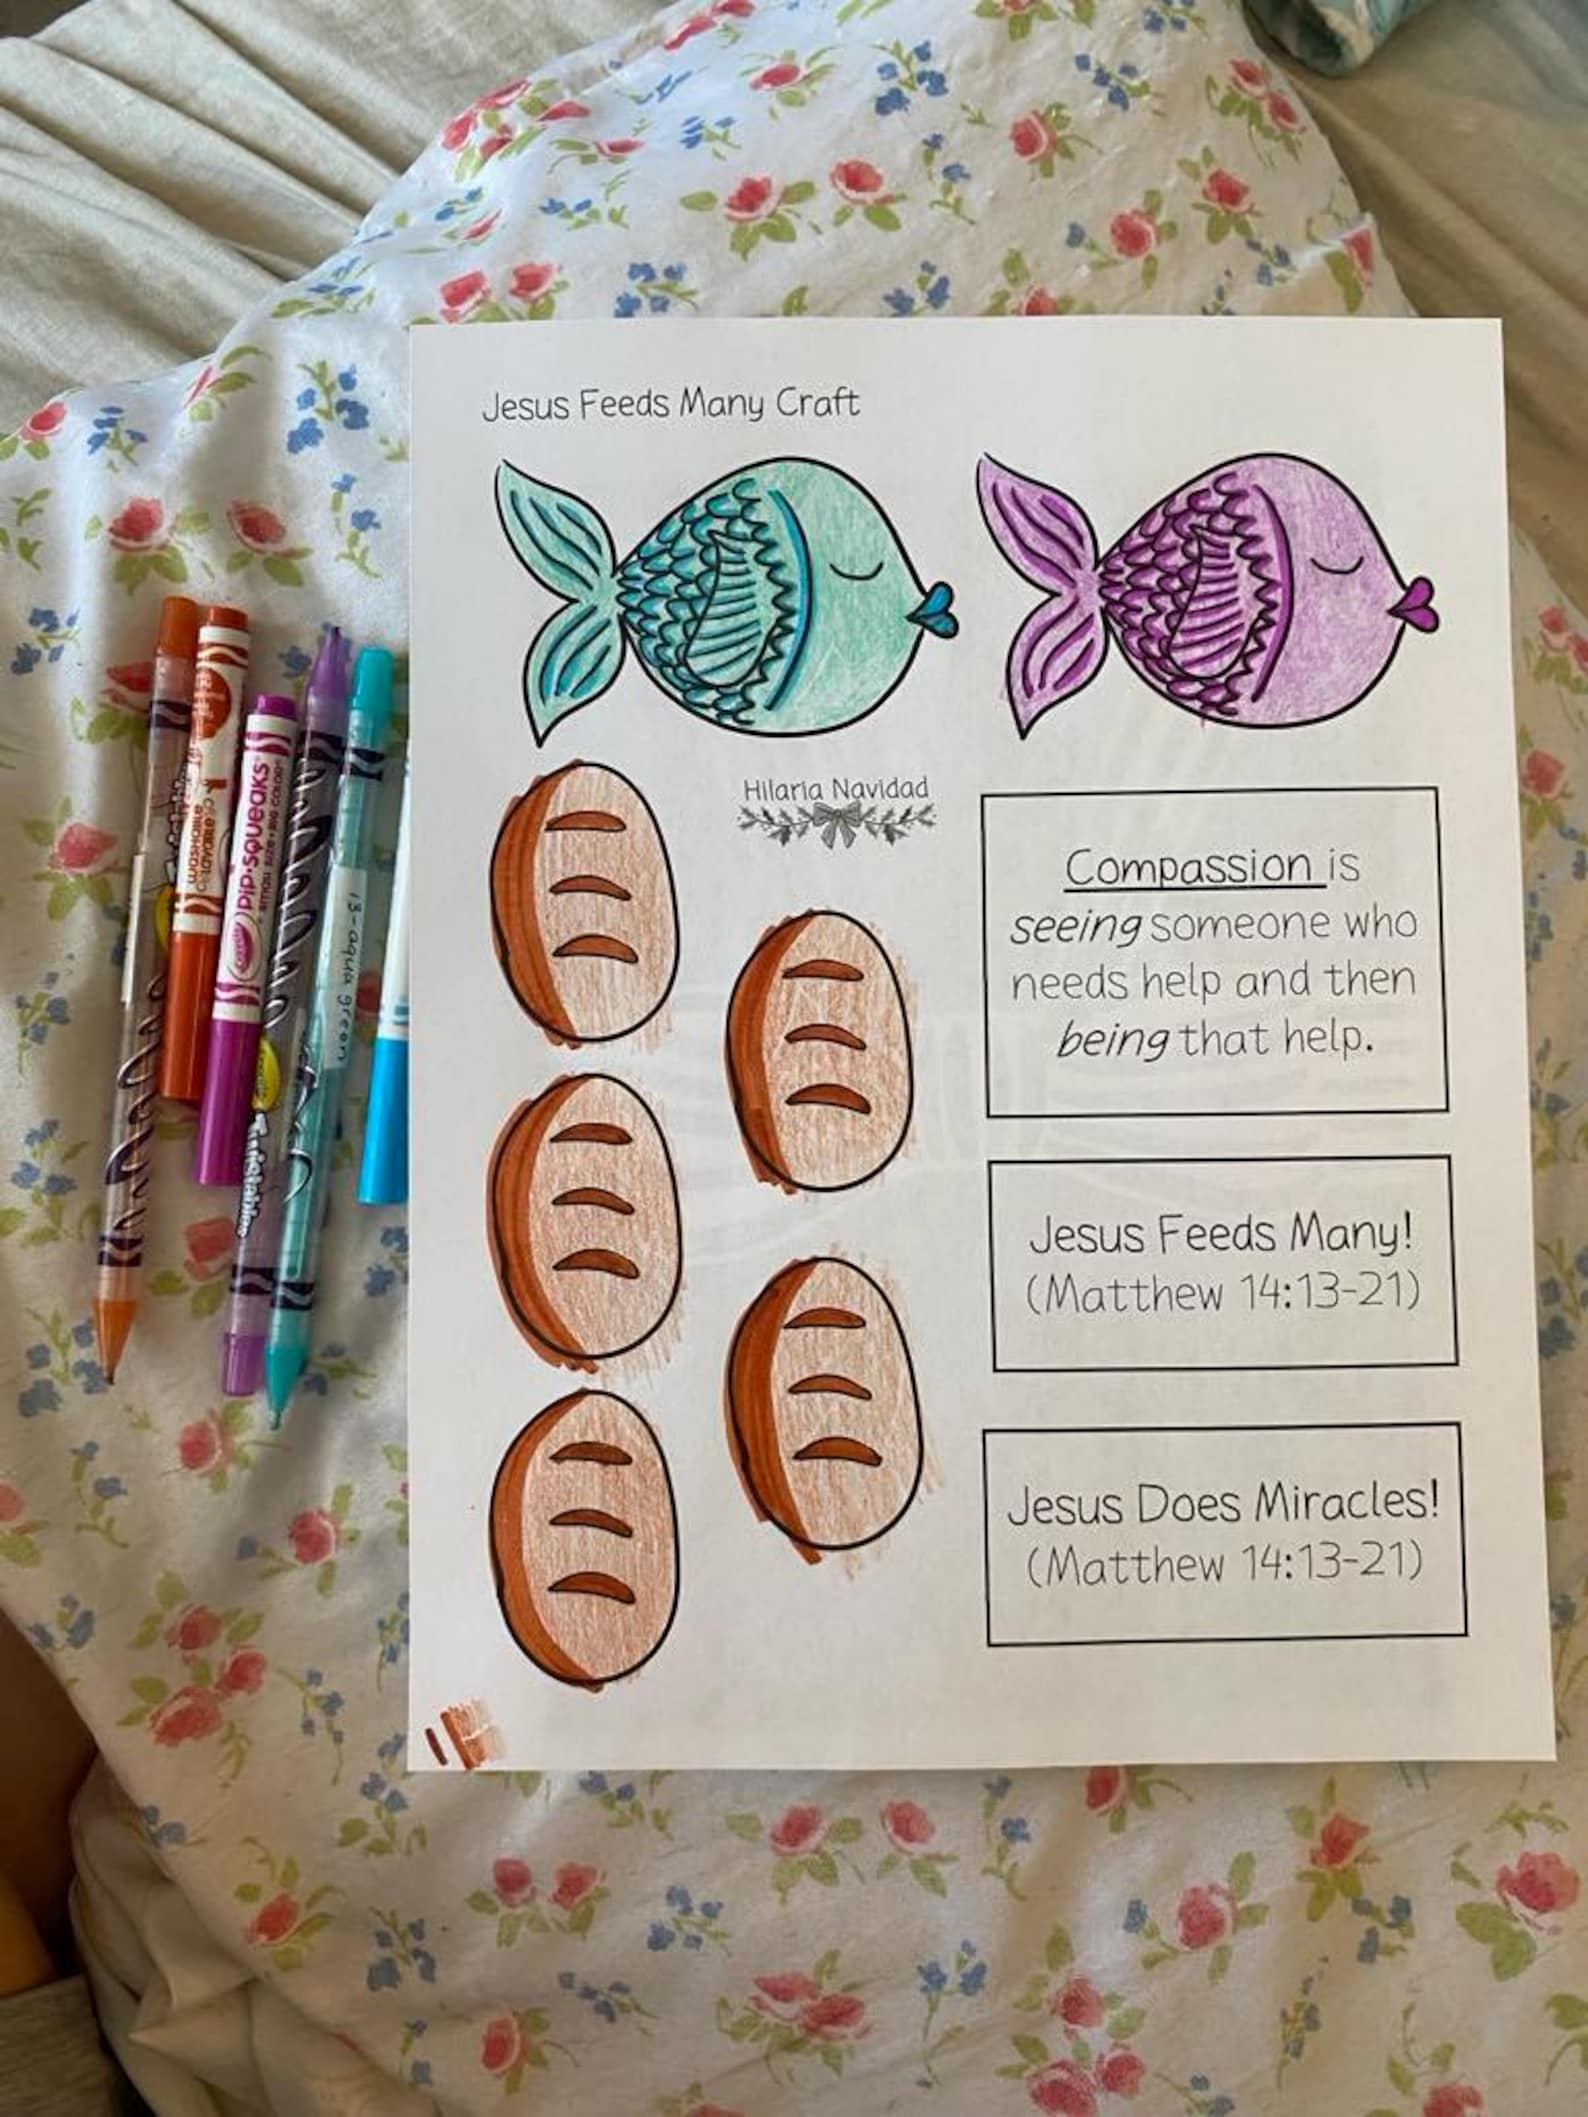 Jesus Feeds Many Craft
Hilaria Navidad
Compassion is
seeing someone who
needs help and then
being that help.
Jesus Feeds Many!
(Matthew 14:13-21)
Jesus Does Miracles!
(Matthew 14:13-21)
washable
pip·squeaks
13-aqua green
Twistables